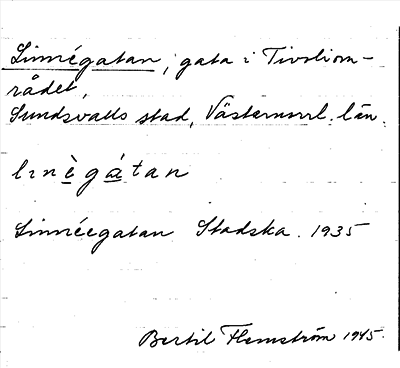 Linnégatan, gata i Tivoliom-
rådet,
Sundsvalls stad, Västernorrl. län.
lınègátan
Linnéegatan Stadska. 1935
Bertil Flemström 1945.